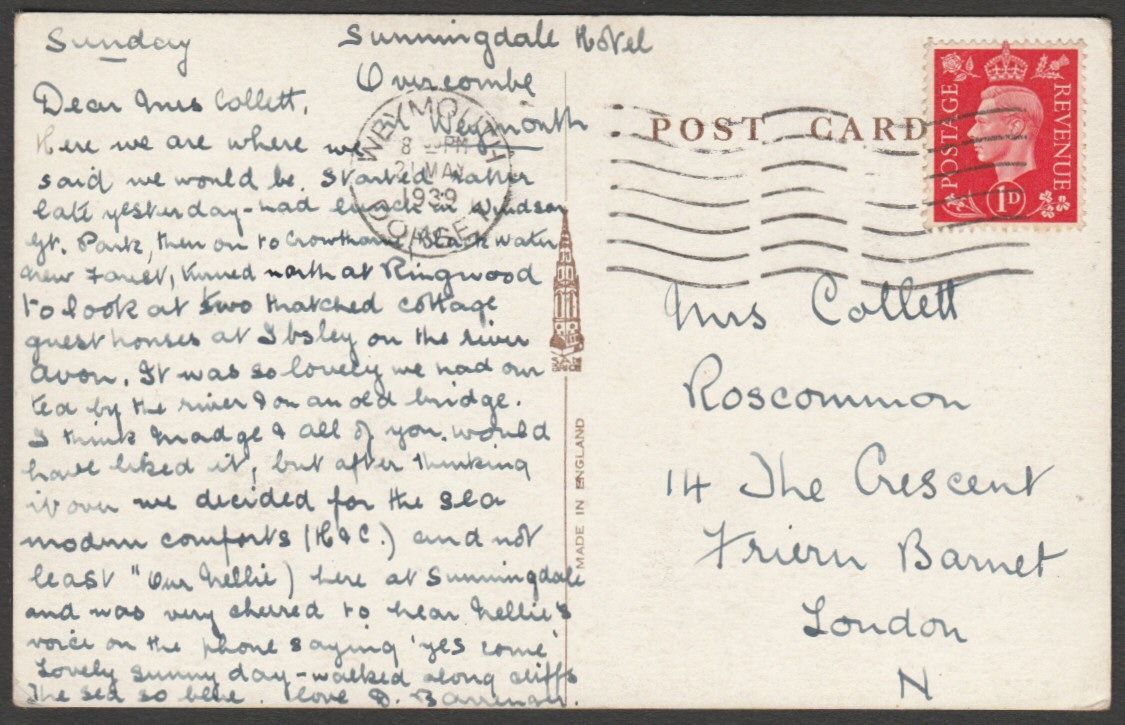 Sunday
Sunningdale Hotel
Overcombe
Nr Weymouth
Dear Mrs Collett,
Here we are where we
said we would be. Started rather
late yesterday - had lunch in Windsor
Gt. Park, then on to Crowthorne, Blackwater
New Forest, turned north at Ringwood
to look at two thatched cottage
guest houses at Ibsley on the river
Avon. It was so lovely we had our
tea by the river & on an old bridge.
I think Madge & all of you would
have liked it, but after thinking
it over we decided for the sea
modern comforts (H & C.) and not
least "Our Nellie) here at Sunningdale
and was very cheered to hear Nellie's
voice on the phone saying 'yes come'
Lovely sunny day - walked along cliffs
The sea so blue. Love D.
WEYMOUTH
8 PM
21 MAY
1939
DORSET
MADE IN ENGLAND
POST CARD
POSTAGE REVENUE
1D
Mrs Collett
Roscommon
14 The Crescent
Friern Barnet
London
N